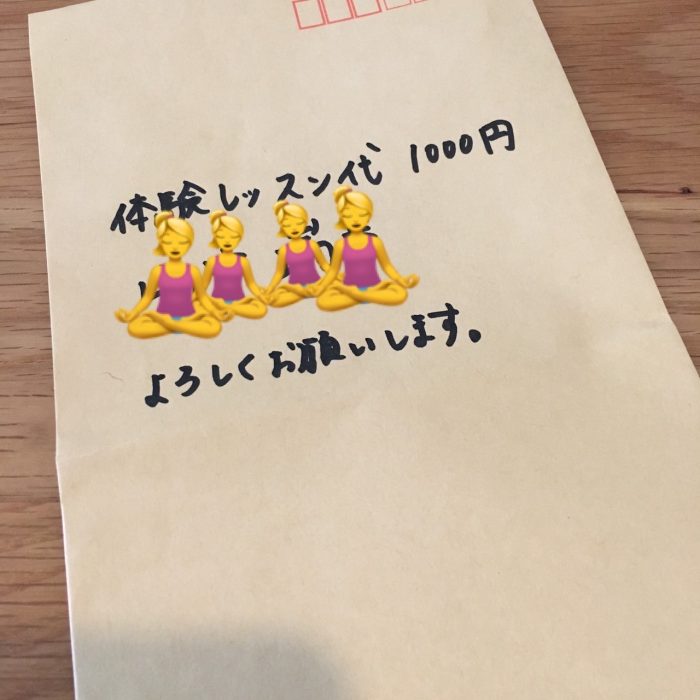 体験レッスン代 1000円
よろしくお願いします。